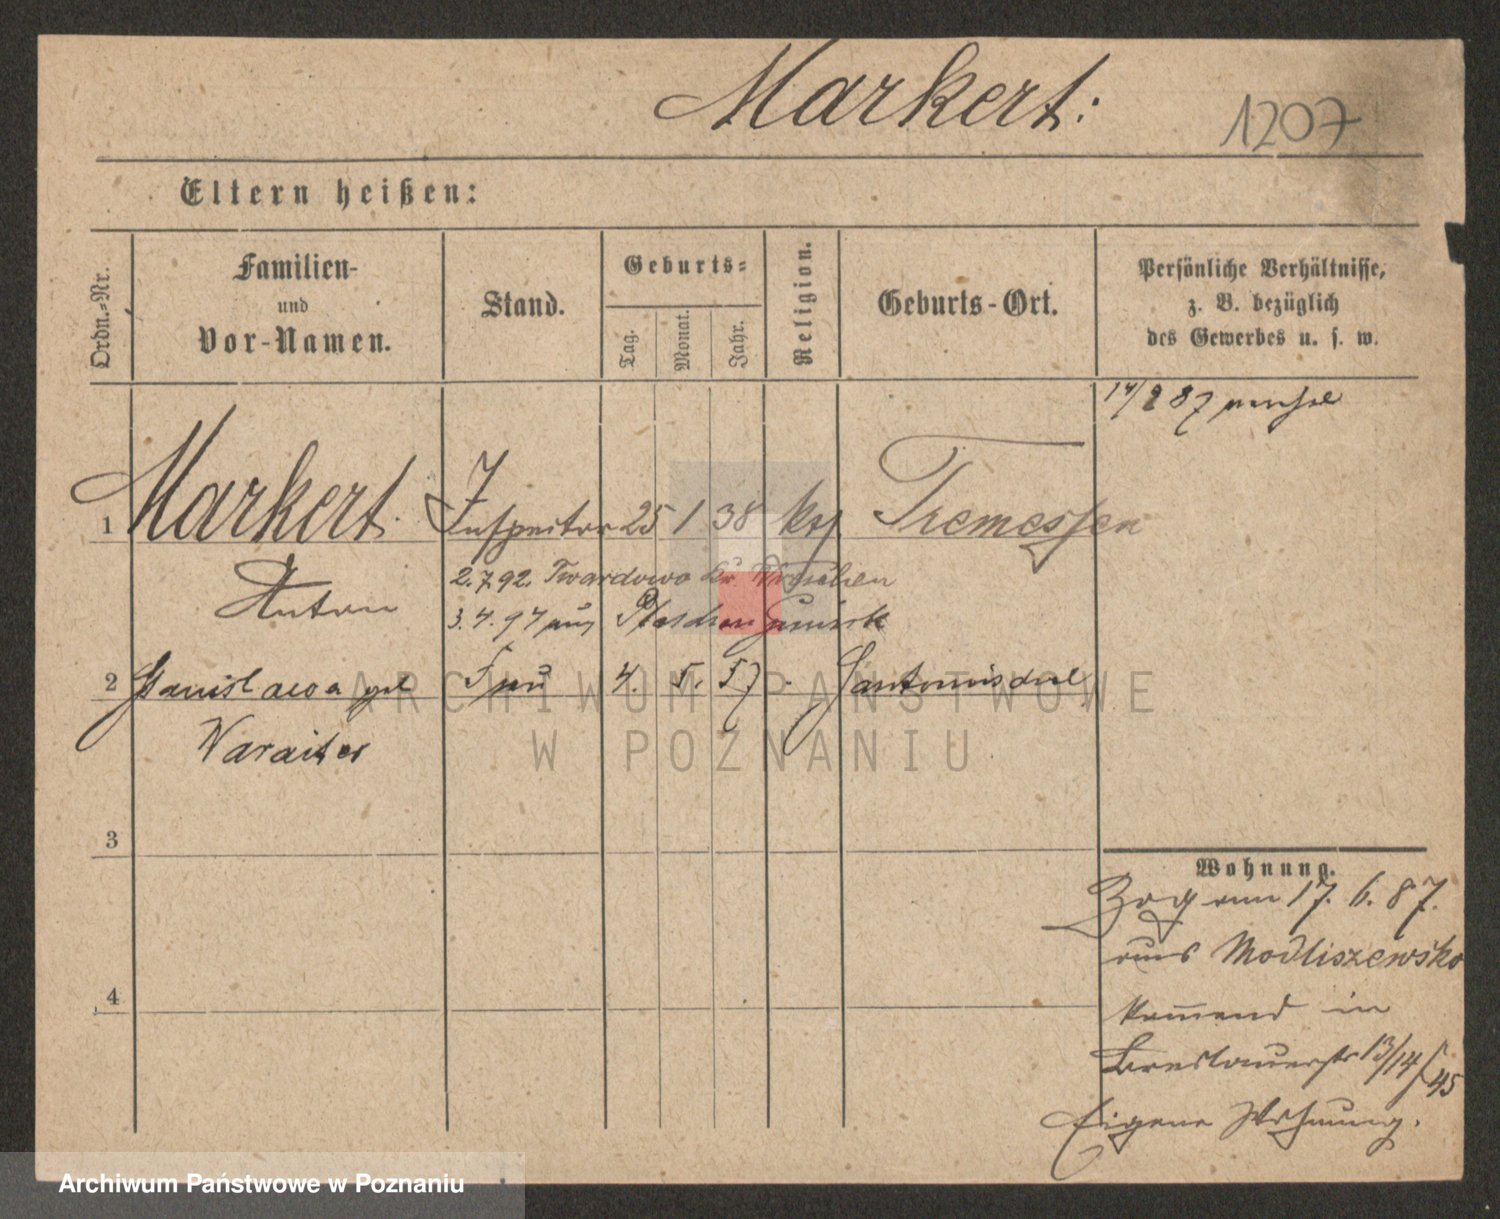 Markert.
1207
Eltern heißen:
Ordn.-Nr.
Familien-
und
Vor-Namen.
Stand.
Geburts-
Tag.
Monat.
Jahr.
Religion.
Geburts-Ort.
Persönliche Verhältnisse,
z. B. bezüglich
des Gewerbes u. s. w.
14/2 87
1 Markert Inspector 25 1 38 Tremessen
Anton
2.7.92. Twardowo Kr. Wreschen
3.4.97 aus Pleschen zurück
2 Stanislawa geb Frau 4. 5. 57
3
4
Wohnung.
Zog am 17. 6. 87.
aus Modliszewsko
kommend in
Breslauerstr 13/14/45
Eigene Wohnung.
ARCHIWUM PAŃSTWOWE
W POZNANIU
Archiwum Państwowe w Poznaniu